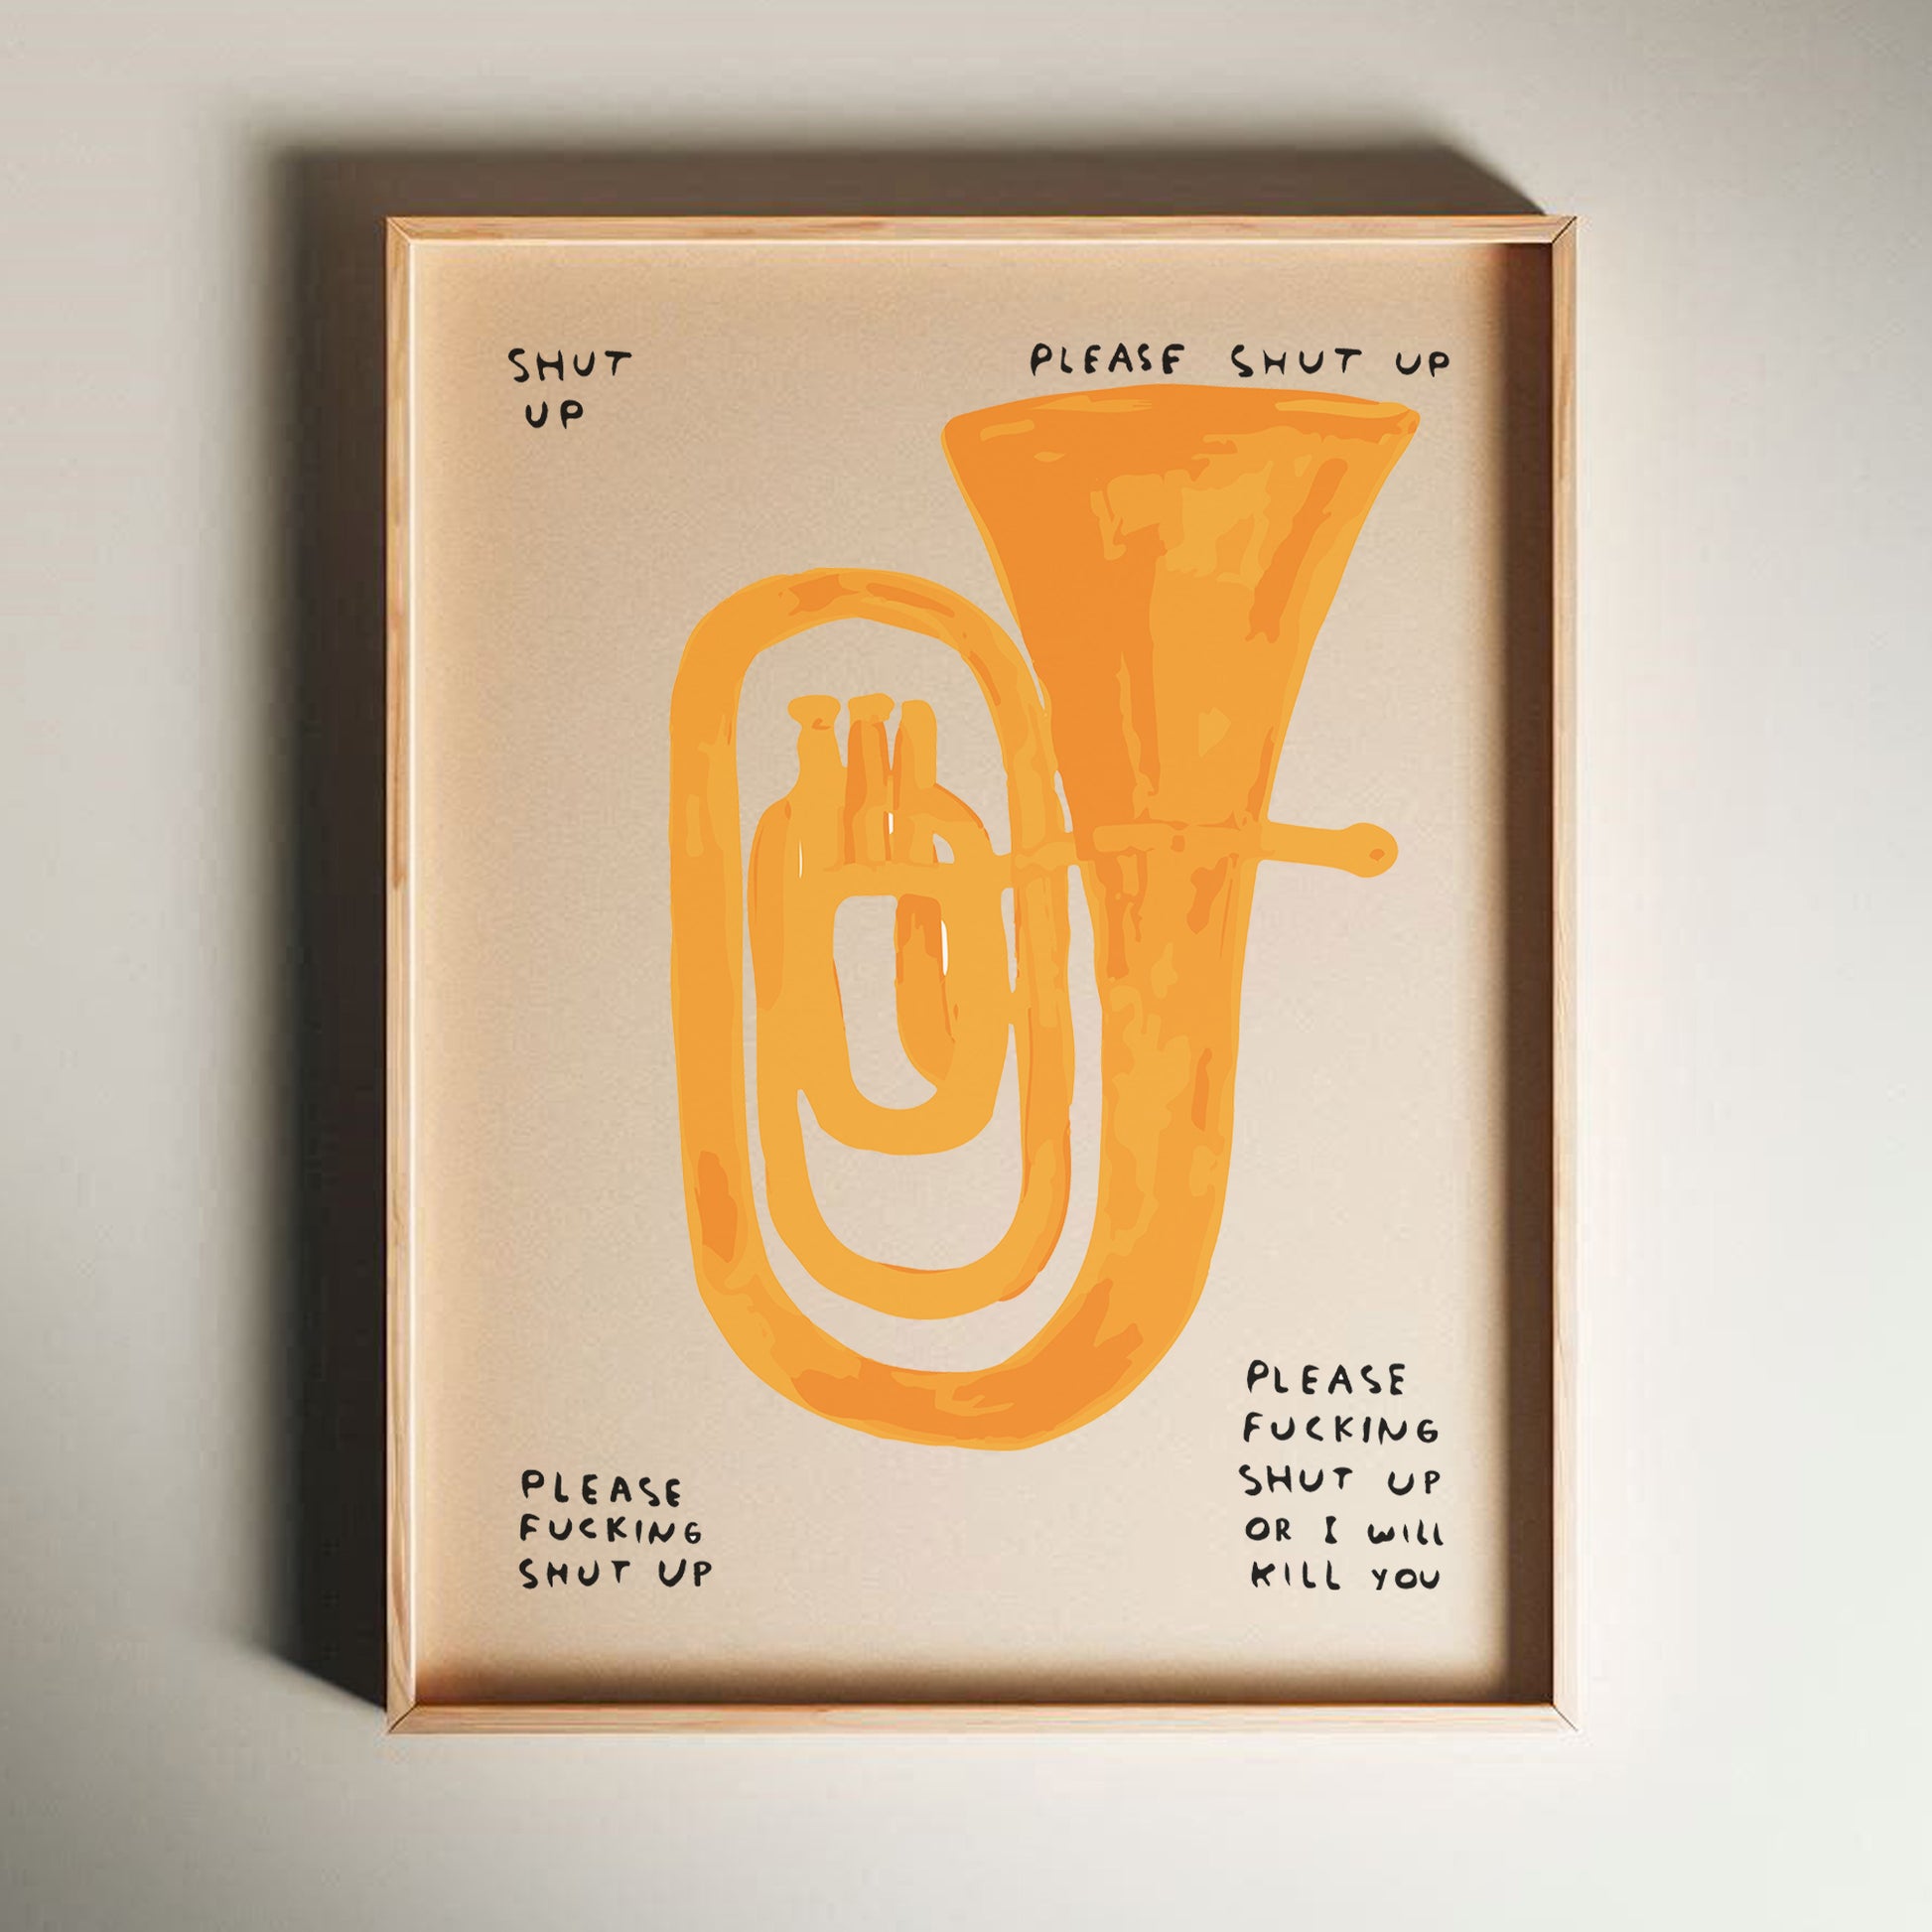 SHUT
UP
PLEASE SHUT UP
PLEASE
FUCKING
SHUT UP
PLEASE
FUCKING
SHUT UP
OR I WILL
KILL YOU